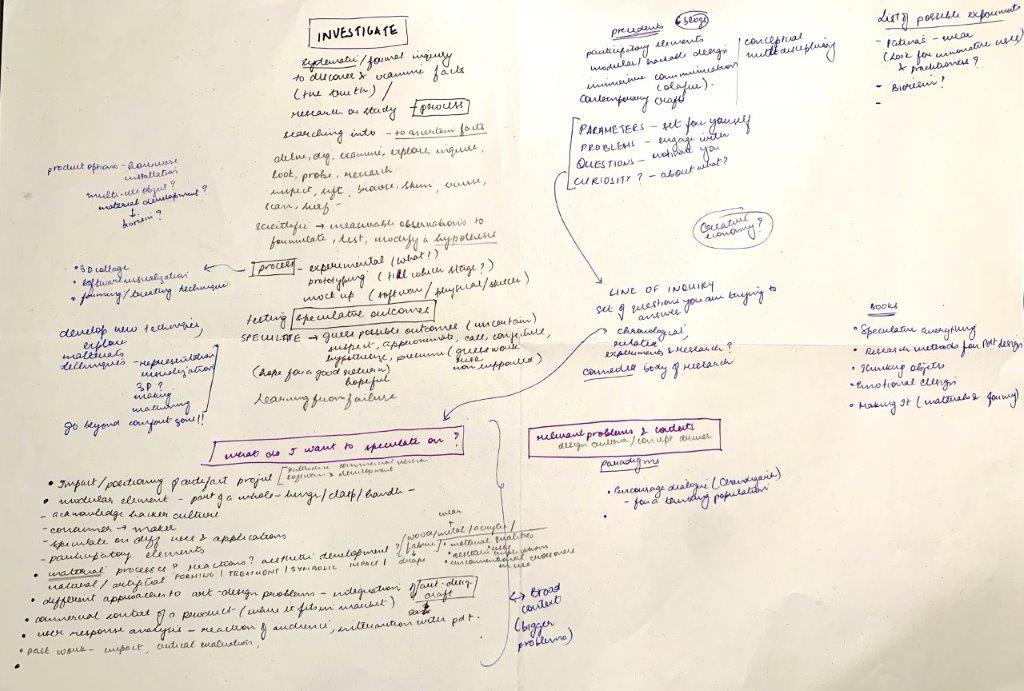 INVESTIGATE
systematic/formal inquiry
to discover & examine facts
(the truth) /
research or study - process
searching into - to ascertain facts
delve, dig, examine, explore, inquire,
look, probe, research
inspect, sift, browse, skim,
scan, surf -
scientific → measurable observations to
formulate, test, modify a hypothesis
process - experimental (what?)
prototyping (till which stage?)
mock up (software / physical/
testing speculative outcomes
SPECULATE → guess possible outcomes (uncertain)
suspect, approximate, call, conjecture,
hypothesize, presume (guess work
risk
(hope for a good return) non supported)
hopeful
learning from failure
product options - homeware
installation
multi-use object?
material development?
↓
bioresin?
• 3D collage
• software visualization
• forming/treating technique
develop new techniques,
explore
materials
techniques - representation
visualization
3D?
making
machining
go beyond comfort zone!!
precedents • blogs
participatory elements
modular/ design
immersive communication
(olafur).
contemporary craft
conceptual
multidisciplinary
PARAMETERS - set for yourself
PROBLEMS - engage with
QUESTIONS - motivate you
CURIOSITY? - about what?
Creative
economy?
LINE OF INQUIRY
set of questions you are trying to
answer
chronological,
related
experiments & research?
connected body of research
List of possible experiments
- Material - wear
(look for innovative uses)
& practitioners?
- Bioresin?
-
BOOKS
• Speculative everything
• Research methods for Pdt design
• Thinking objects
• Emotional design
• Making It (materials &
what do I want to speculate on?
• Impact/positioning of artefact project
commercial version
& development
• modular element - part of a whole - hinge/clasp/handle -
- acknowledge hacker culture
- consumer → maker
- speculate on diff uses & applications
- participatory elements
• material processes & reactions? aesthetic development?
wear
wood/metal/acrylic/
fabric
drape
• material qualities
• uses
• certain applications
• unconventional crossovers
in use
natural/artificial FORMING | TREATMENT | SYMBOLIC IMPACT |
• different approaches to art-design problems - integration of art-design
craft
• commercial context of a product - (where it fits in market)
• user response analysis - reaction of audience, interaction with pdt.
• past work - impact, critical evaluation,
•
↔ Broad
context
(bigger
problems)
relevant problems & contexts
design criteria/concept driver
paradigms
• Encourage dialogue (Chandigarh)
- for a population
•